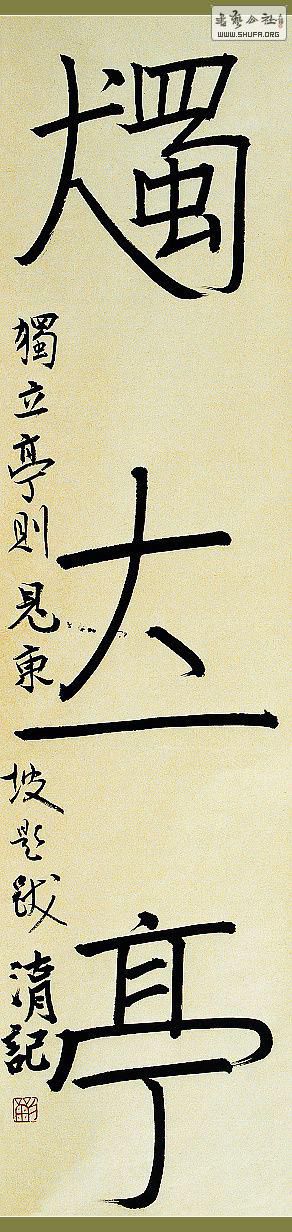 獨立亭
獨立亭則見東坡題跋
清記
書藝公社
WWW.SHUFA.ORG